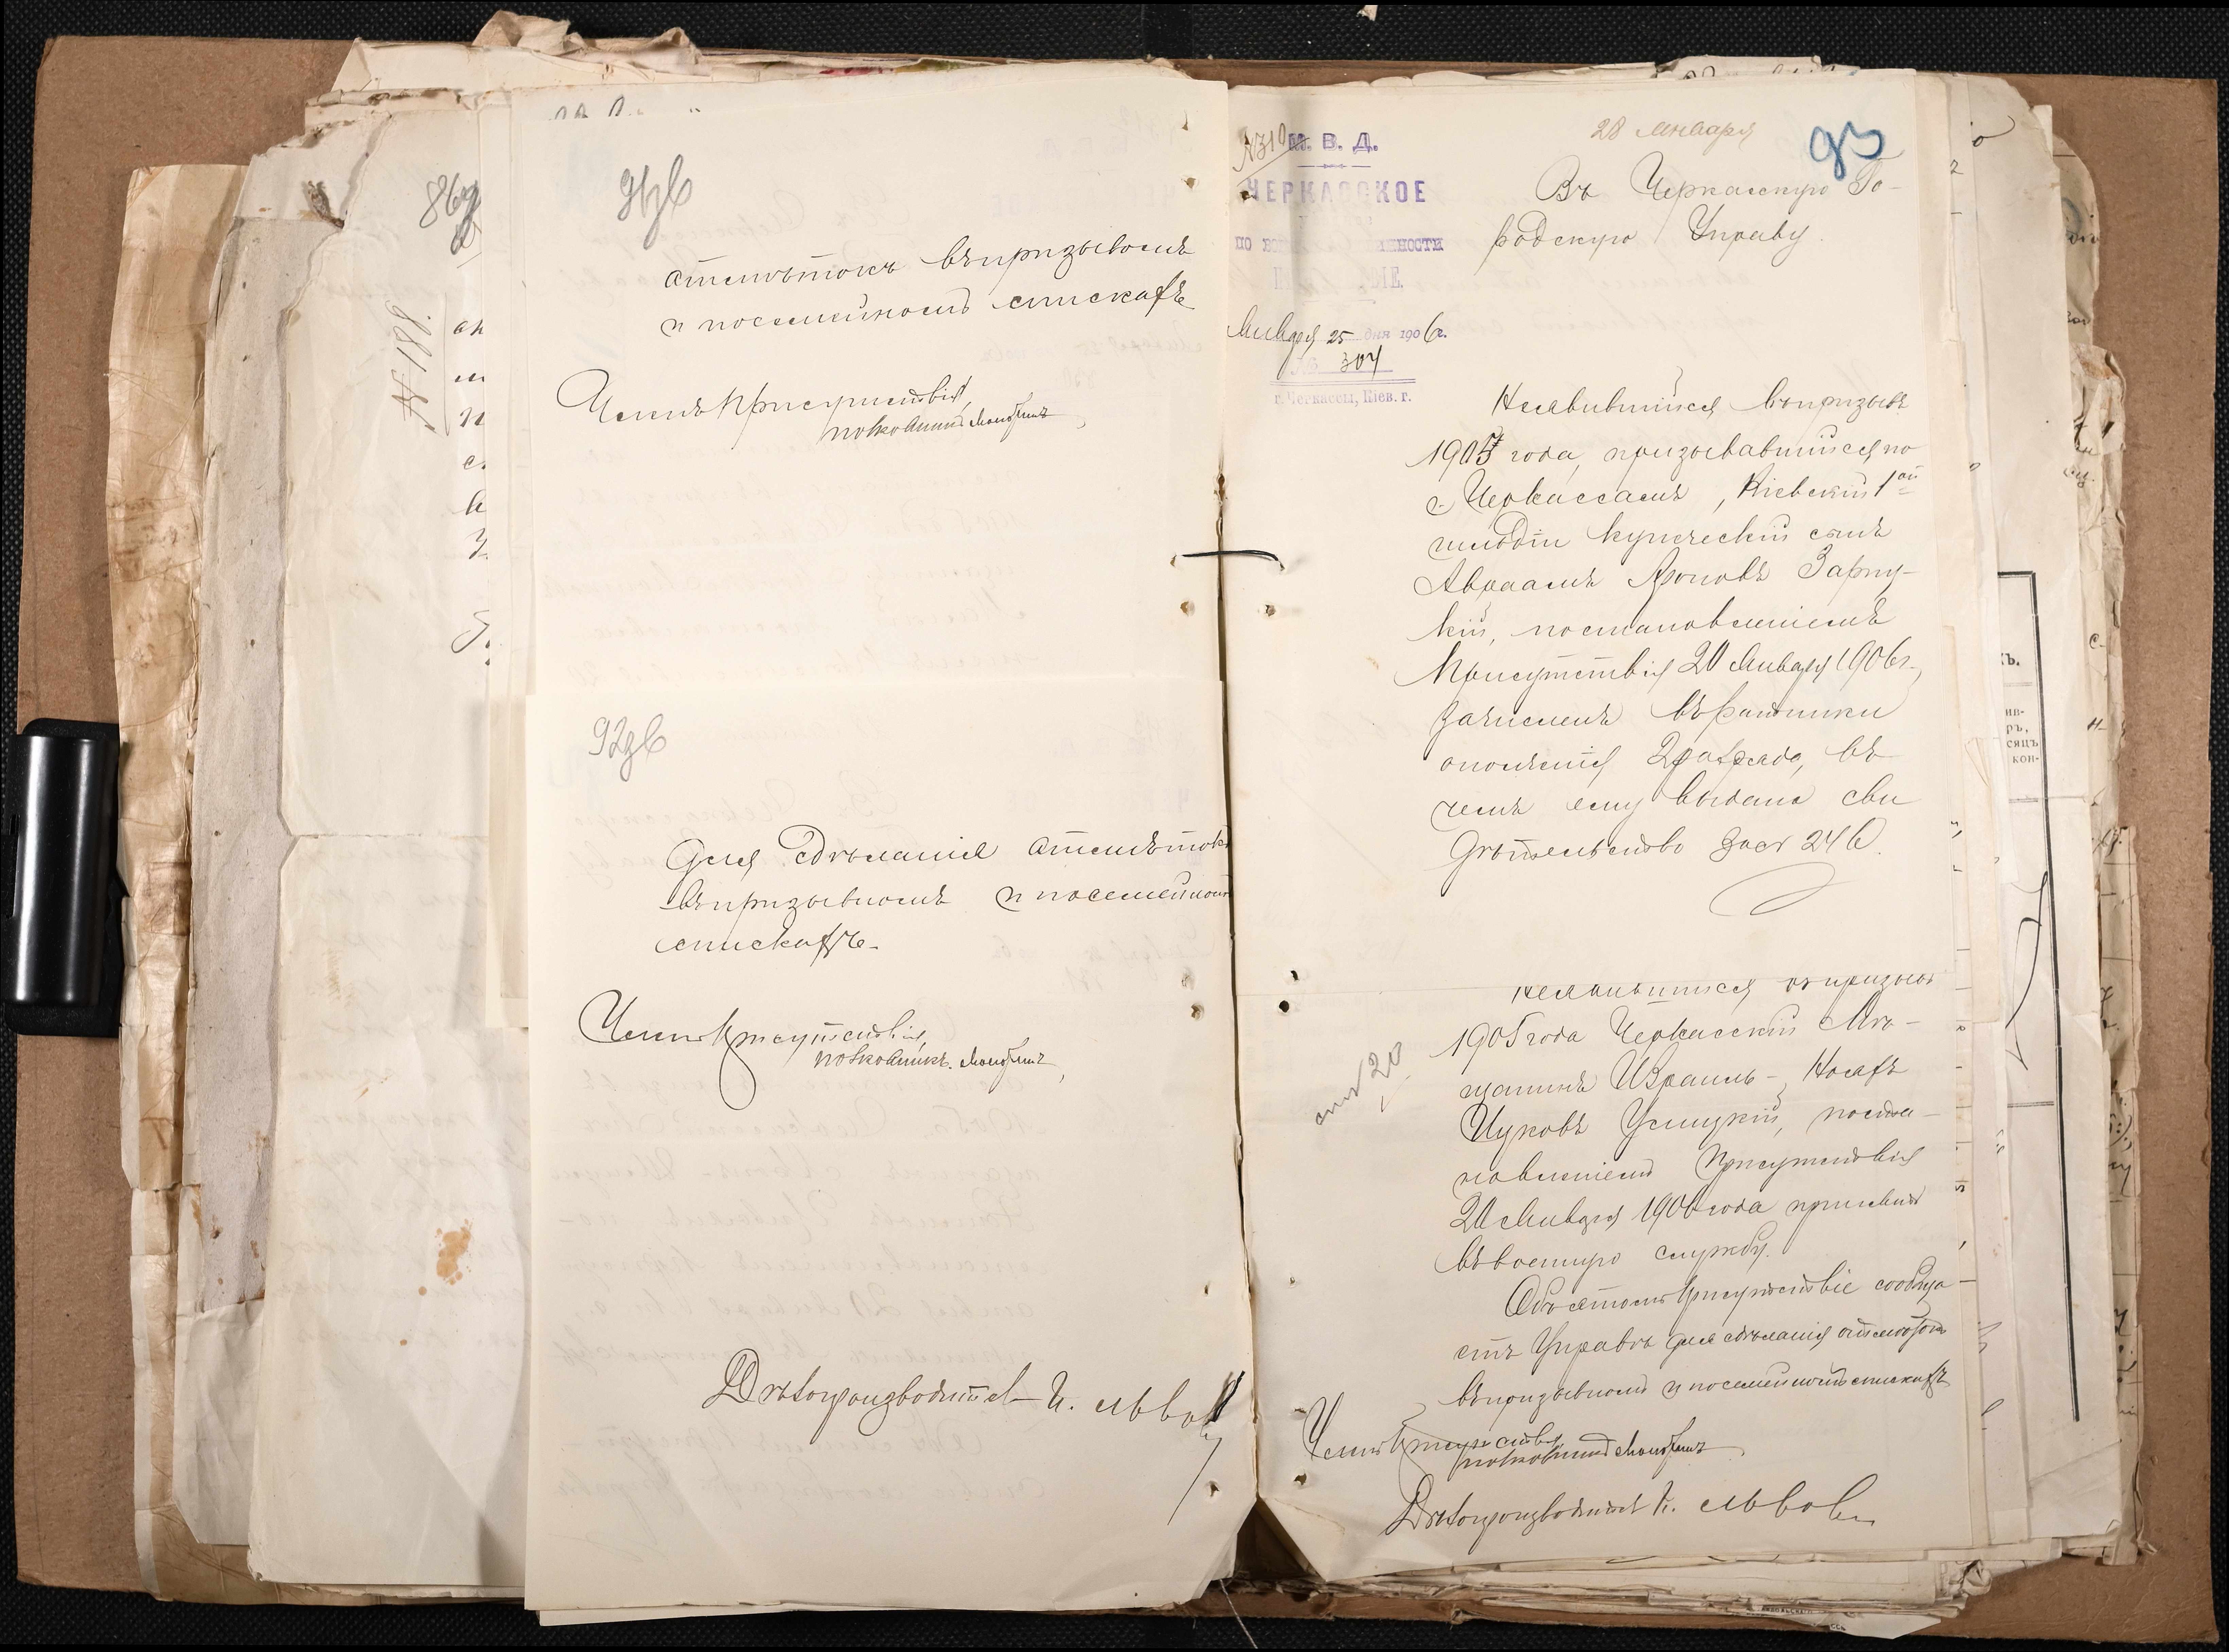 86
№ 189.
91зв
отмѣтокъ въ призывномъ
и посемейномъ спискахъ
Членъ Присутствія,
полковникъ
92зв
Для сдѣланія отмѣтокъ
въ призывномъ и посемейномъ
спискахъ.
Членъ Присутствія,
полковникъ
Дѣлопроизводитель И. Львовъ
№310
М. В. Д.
ЧЕРКАССКОЕ
Января 25 дня 1906 г.
№ 307
г. Черкассы, Кіев. г.
28 января
93
Въ Черкасскую Го-
родскую Управу.
Неявившійся въ призывъ
1905 года, призывавшійся по
г. Черкассамъ, Кіевскій 1ой
гильдіи купеческій сынъ
Авраамъ Ароновъ Заруц-
кій, постановленіемъ
Присутствія 20 Января 1906 г.,
зачисленъ въ ратники
ополченія 2 разряда, въ
чемъ ему выдано сви
дѣтельство за № 246.
Неявившійся въ призывъ
1905 года Черкасскій Мѣ-
щанинъ Израиль-Носъ
Ицковъ Усицкій, поста-
новленіемъ Присутствія
20 Января 1906 года принятъ
въ военную службу.
Объ этомъ Присутствіе сообща-
етъ Управѣ для сдѣланія отмѣтокъ
въ призывномъ и посемейномъ спискахъ
Членъ Присутствія
полковникъ
Дѣлопроизводитель И. Львовъ